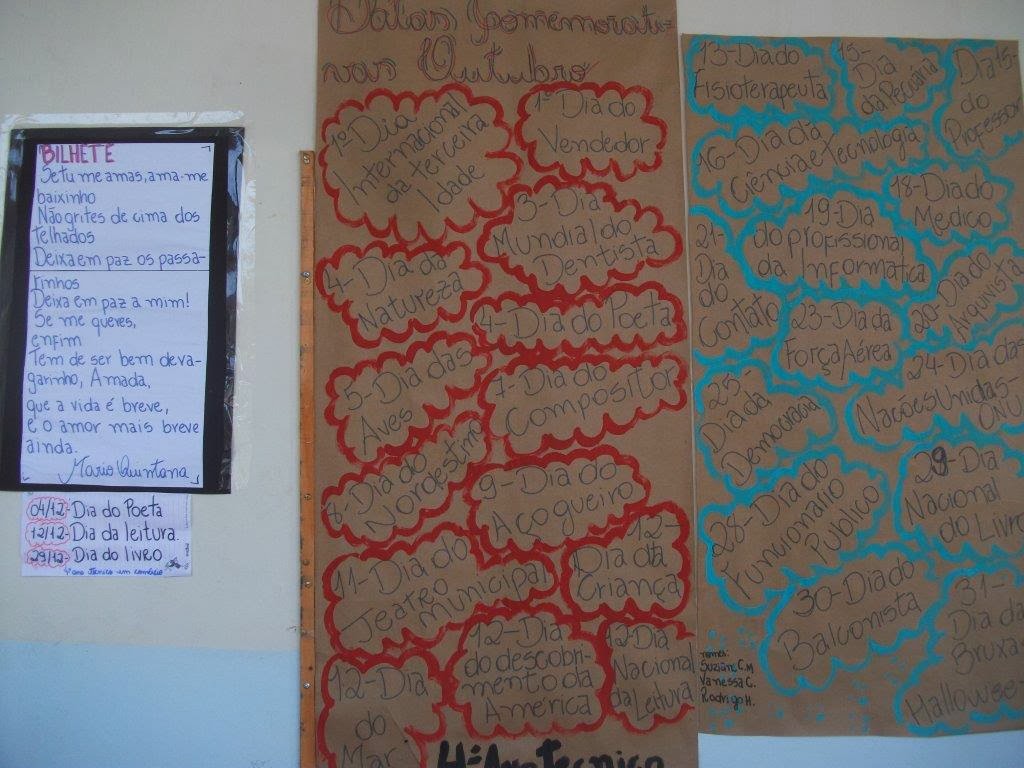 BILHETE
Se tu me amas, ama-me
baixinho
Não grites de cima dos
telhados
Deixa em paz os passa-
rinhos
Deixa em paz a mim!
Se me queres,
enfim
Tem de ser bem deva-
garinho, Amada,
que a vida é breve,
e o amor mais breve
ainda.
Mario Quintana
04/12- Dia do Poeta
12/12- Dia da leitura.
29/12- Dia do livro
4º ano Técnico em comércio
Datas Comemorati-
vas Outubro
1º Dia
Internacional
da terceira
Idade
1º Dia do
Vendedor
3- Dia
Mundial do
Dentista
4- Dia da
Natureza
4- Dia do Poeta
5- Dia das
Aves
7- Dia do
Compositor
8- Dia do
Nordestino
9- Dia do
Açogueiro
11- Dia do
Teatro
municipal
12-
Dia da
Criança
12- Dia
do
Mar
12- Dia
do descobri-
mento da
América
12- Dia
Nacional
da Leitura
4º Ano Tecnico
13- Dia do
Fisioterapeuta
15-
Dia
da Pecuária
Dia 15-
do
Professor
16- Dia da
Ciência e Tecnologia
18- Dia do
Medico
19- Dia
do profissional
da Informatica
20- Dia do
Arquivista
21-
Dia
do
Contato
23- Dia da
Força Aérea
24- Dia das
Nações Unidas-
ONU
25-
Dia da
Democracia
28- Dia do
Funcionário
Público
29- Dia
Nacional
do Livro
30- Dia do
Balconista
31-
Dia da
Bruxa-
Halloween
nomes:
Suzian C.M
Vanessa C.
Rodrigo H.